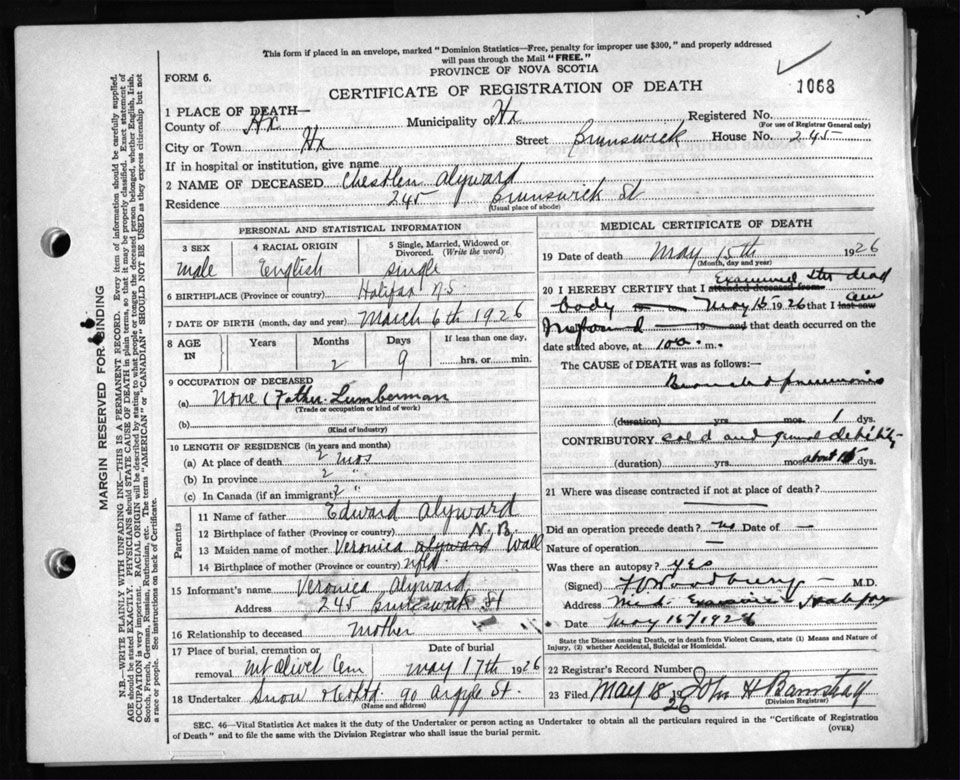 This form if placed in an envelope, marked "Dominion Statistics—Free, penalty for improper use $300," and properly addressed
will pass through the Mail "FREE."
FORM 6.
PROVINCE OF NOVA SCOTIA
CERTIFICATE OF REGISTRATION OF DEATH
1068
1 PLACE OF DEATH—
County of Hx Municipality of Hx Registered No.
(For use of Registrar General only)
City or Town Hx Street Brunswick House No. 245
If in hospital or institution, give name
2 NAME OF DECEASED Chestlen Alyward
Residence 245 Brunswick St
(Usual place of abode)
PERSONAL AND STATISTICAL INFORMATION
3 SEX 4 RACIAL ORIGIN 5 Single, Married, Widowed or
Divorced. (Write the word)
male English single
6 BIRTHPLACE (Province or country) Halifax N.S.
7 DATE OF BIRTH (month, day and year) March 6th 1926
8 AGE IN Years Months Days If less than one day,
2 9 hrs. or min.
9 OCCUPATION OF DECEASED
(a) None (Father Lumberman
(Trade or occupation or kind of work)
(b)
(Kind of industry)
10 LENGTH OF RESIDENCE (in years and months)
(a) At place of death 2 mos
(b) In province 2 "
(c) In Canada (if an immigrant) 2 "
Parents
11 Name of father Edward Alyward
12 Birthplace of father (Province or country) N.B.
13 Maiden name of mother Veronica Alyward Wall
14 Birthplace of mother (Province or country) Nfld.
15 Informant's name Veronica Alyward
Address 245 Brunswick St
16 Relationship to deceased mother
17 Place of burial, cremation or removal Date of burial
Mt Olivet Cem May 17th 1926
18 Undertaker Snow & Co Ltd. 90 Argyle St.
(Name and address)
MEDICAL CERTIFICATE OF DEATH
19 Date of death May 15th 1926
(Month, day and year)
20 I HEREBY CERTIFY that I attended deceased from Examined the dead
body to May 15 1926 that I last saw am
Informed 19 and that death occurred on the
date stated above, at 10 a. m.
The CAUSE OF DEATH was as follows:—
Broncho pneumonia
(duration) yrs. mos. 1 dys.
CONTRIBUTORY cold and general debility
(duration) yrs. mos. about 15 dys.
21 Where was disease contracted if not at place of death?
Did an operation precede death? no Date of —
Nature of operation —
Was there an autopsy? yes
(Signed) Woodbury M.D.
Address Med. Examiner Halifax
Date May 16/1926
State the Disease causing Death, or in death from Violent Causes, state (1) Means and Nature of
Injury, (2) whether Accidental, Suicidal or Homicidal.
22 Registrar's Record Number
23 Filed May 18 1926 John H Barnstead
(Division Registrar)
SEC. 46—Vital Statistics Act makes it the duty of the Undertaker or person acting as Undertaker to obtain all the particulars required in the "Certificate of Registration
of Death" and to file the same with the Division Registrar who shall issue the burial permit.
(OVER)
MARGIN RESERVED FOR BINDING
N.B.—WRITE PLAINLY WITH UNFADING INK—THIS IS A PERMANENT RECORD. Every item of information should be carefully supplied.
AGE should be stated EXACTLY. PHYSICIANS should STATE CAUSE OF DEATH in plain terms, so that it may be properly classified. Exact statement of
OCCUPATION is very important. RACIAL ORIGIN will be described by stating to what people or tongue the deceased person belonged, whether English, Irish,
Scotch, French, German, Russian, Ruthenian, etc. The terms "AMERICAN" or "CANADIAN" SHOULD NOT BE USED as they express citizenship but not
a race or people. See instructions on back of Certificate.